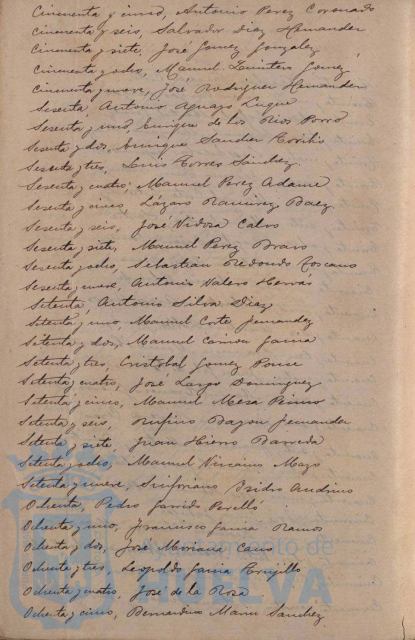 Cincuenta y cinco, Antonio Perez Coronado
Cincuenta y seis, Salvador Diaz Hernandez
Cincuenta y siete, José Gomez Gonzalez
Cincuenta y ocho, Manuel Quintero Gomez
Cincuenta y nueve, José Rodriguez Hernandez
Sesenta, Antonio Aguayo Luque
Sesenta y uno, Enrique de los Rios Porro
Sesenta y dos, Enrique Sanchez
Sesenta y tres, Luis Torres Sanchez.
Sesenta y cuatro, Manuel Perez Adame
Sesenta y cinco, Lázaro Ramirez Baez
Sesenta y seis, José Vidosa Calvo
Sesenta y siete, Manuel Perez Bravo
Sesenta y ocho, Sebastian Redondo Toscano
Sesenta y nueve, Antonio Valero Herras
Setenta, Antonio Silva Diaz
Setenta y uno, Manuel Corte Fernandez
Setenta y dos, Manuel Garcia
Setenta y tres, Cristobal Gomez Ponce
Setenta y cuatro, José Largo Dominguez
Setenta y cinco, Manuel Mesa
Setenta y seis, Rufino Bazan Fernandez
Setenta y siete Juan Hierro Barreda
Setenta y ocho, Manuel Mazo
Setenta y nueve, Sinforiano Isidro
Ochenta, Pedro Garrido Perelló
Ochenta y uno, Francisco Garcia Ramos
Ochenta y dos, José Moriana Cano
Ochenta y tres, Leopoldo Garcia Trujillo
Ochenta y cuatro, José de la Rosa
Ochenta y cinco, Bernardino Marin Sanchez
Ayuntamiento de
HUELVA